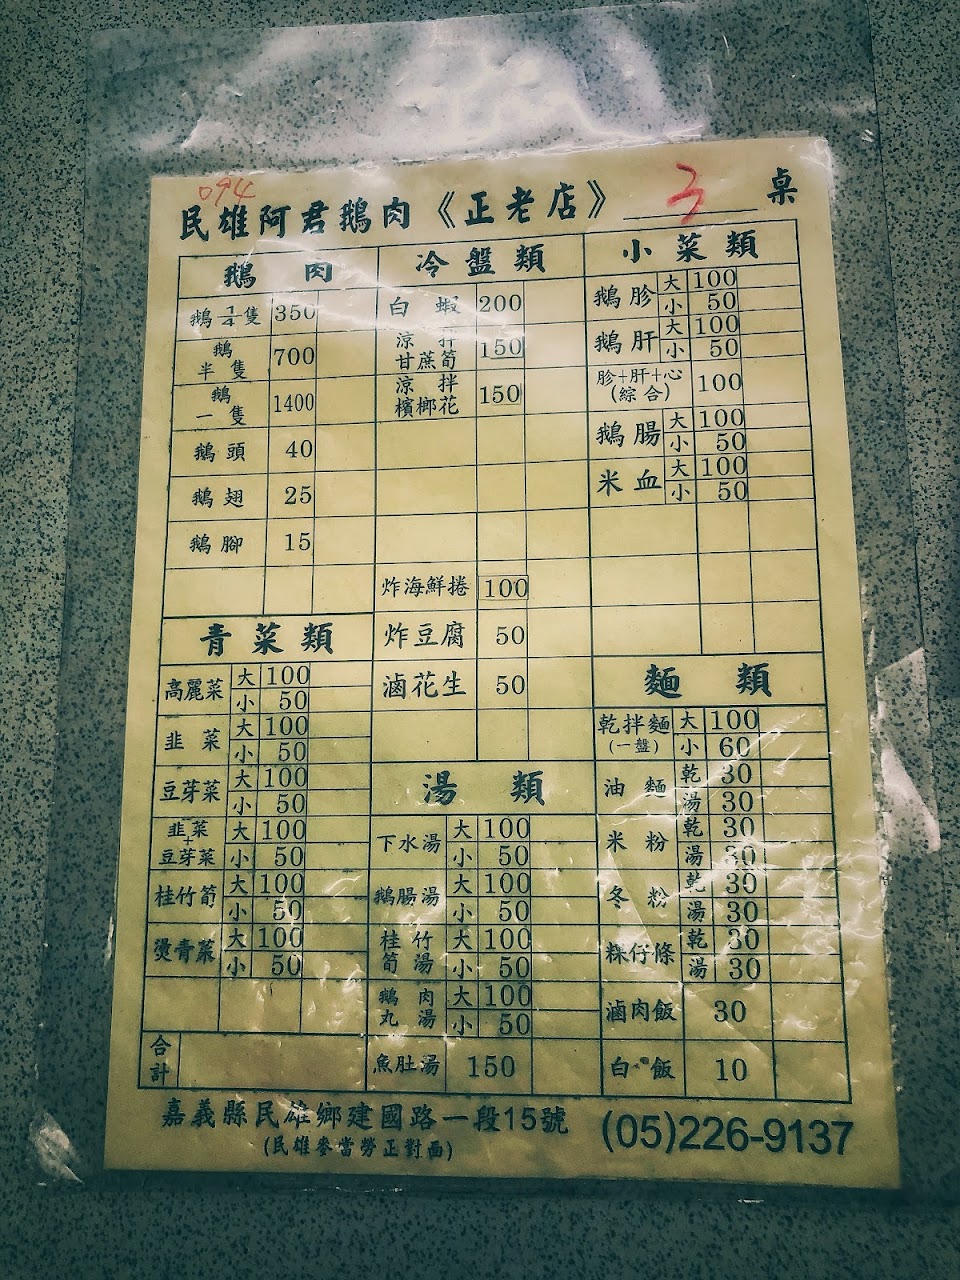 094
民雄阿君鵝肉《正老店》 3 桌
鵝肉
鵝 1/4 隻 350
鵝半隻 700
鵝一隻 1400
鵝頭 40
鵝翅 25
鵝腳 15
青菜類
高麗菜 大 100
小 50
韭菜 大 100
小 50
豆芽菜 大 100
小 50
韭菜+豆芽菜 大 100
小 50
桂竹筍 大 100
小 50
燙青菜 大 100
小 50
合計
冷盤類
白蝦 200
涼拌甘蔗筍 150
涼拌檳榔花 150
炸海鮮捲 100
炸豆腐 50
滷花生 50
湯類
下水湯 大 100
小 50
鵝腸湯 大 100
小 50
桂竹筍湯 大 100
小 50
鵝肉丸湯 大 100
小 50
魚肚湯 150
小菜類
鵝胗 大 100
小 50
鵝肝 大 100
小 50
胗+肝+心(綜合) 100
鵝腸 大 100
小 50
米血 大 100
小 50
麵類
乾拌麵(一盤) 大 100
小 60
油麵 乾 30
湯 30
米粉 乾 30
湯 30
冬粉 乾 30
湯 30
粿仔條 乾 30
湯 30
滷肉飯 30
白飯 10
嘉義縣民雄鄉建國路一段15號
(民雄麥當勞正對面)
(05)226-9137